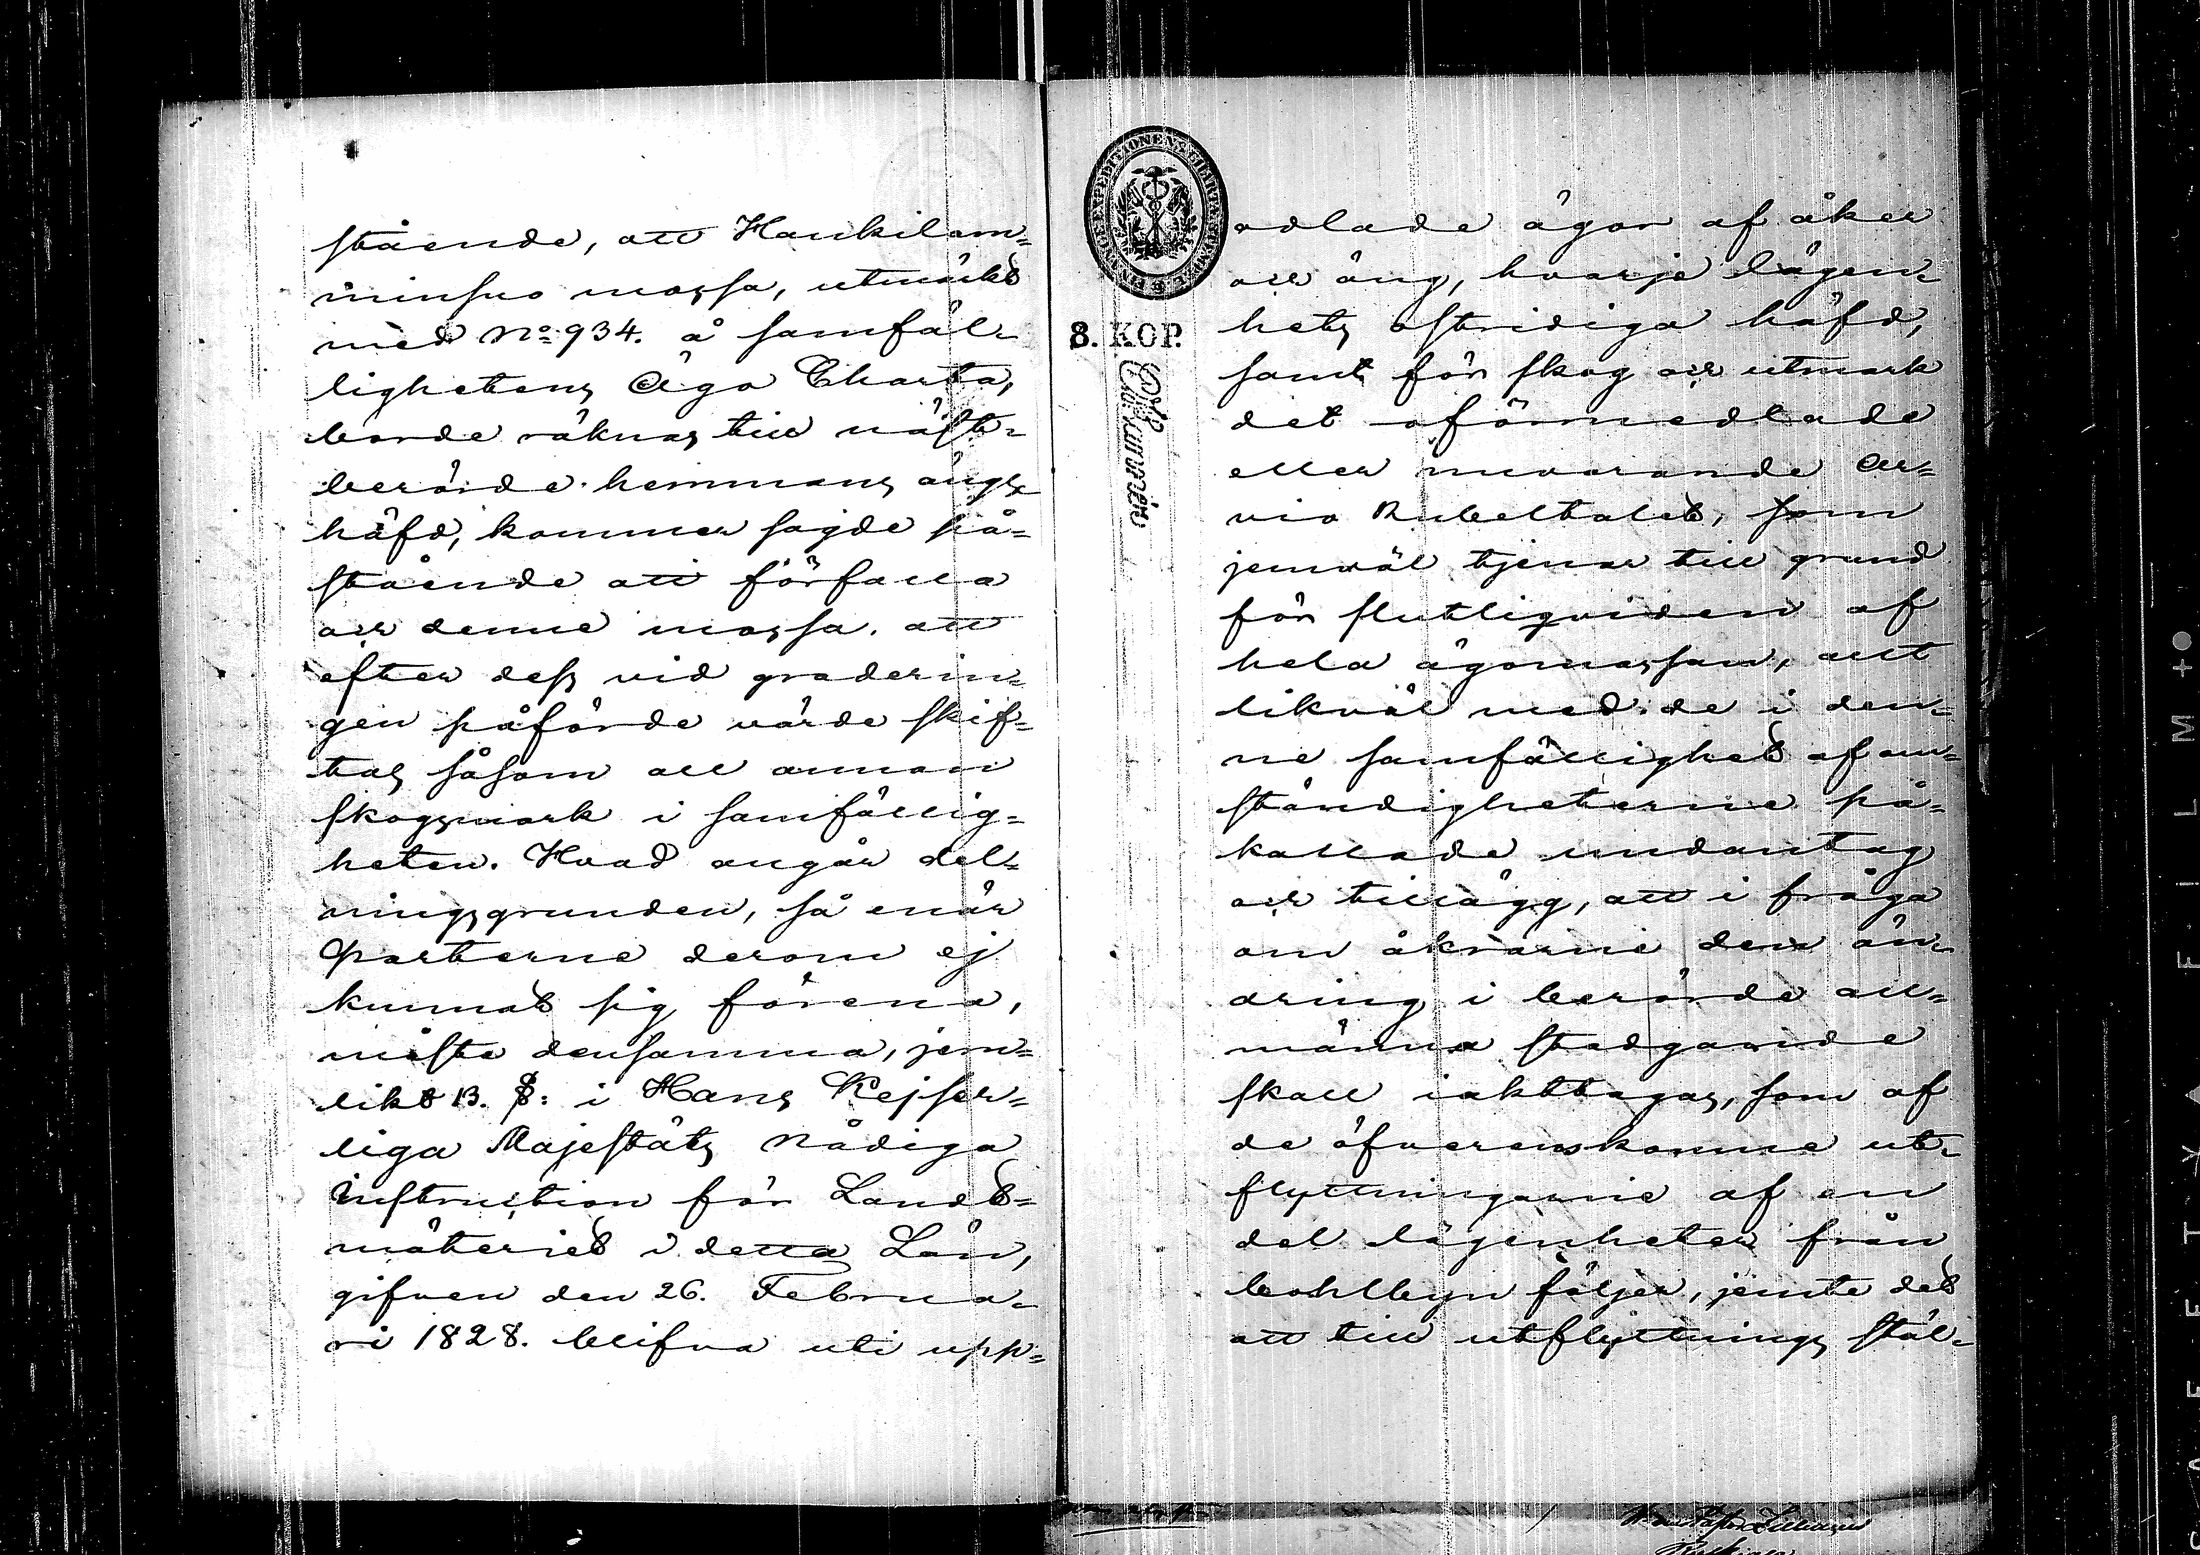 stående, att Haukilam=
minsuo mossa, utmärkt
med No 934. å samfäl=
lighetens Ägo Charta,
borde räknas till näst=
berörde hemmans ängs
häfd, kommer sagde på=
stående att förfalla
och denne mossa, att
efter dess vid graderin=
gen påförde värde skif=
tas såsom all annan
skogsmark i samfällig=
heten. Hvad angår del=
ningsgrunden, så enär
Parterne derom ej
kunnat sig förena,
måste densamma, jem=
likt 13. §: i Hans Kejser=
liga Majestäts Nådiga
Instruction för Landt=
mäteriet i detta Län,
gifven den 26. Februa=
ri 1828. blifva uti upp=
8. KOP.
Chartæ
odlade ägor af åker
och äng, hvarje lägen=
hets ostridiga häfd,
samt för skog och utmark
det oförmedlade
eller nuvarande Ar=
vio Rubeltalet, som
jemväl tjenar till grund
för slutliqviden af
hela ägomassan, allt
likväl med de i den=
ne samfällighet af om=
ständigheterne på=
kallade undantag
och tillägg, att i fråga
om åkrarne den än=
dring i berörde all=
männa stadgande
skall iakttagas, som af
de öfverenskomne ut=
flyttningarne af en
del lägenheter från
bohlbyn följer, jemte det
att till utflyttnings stäl=